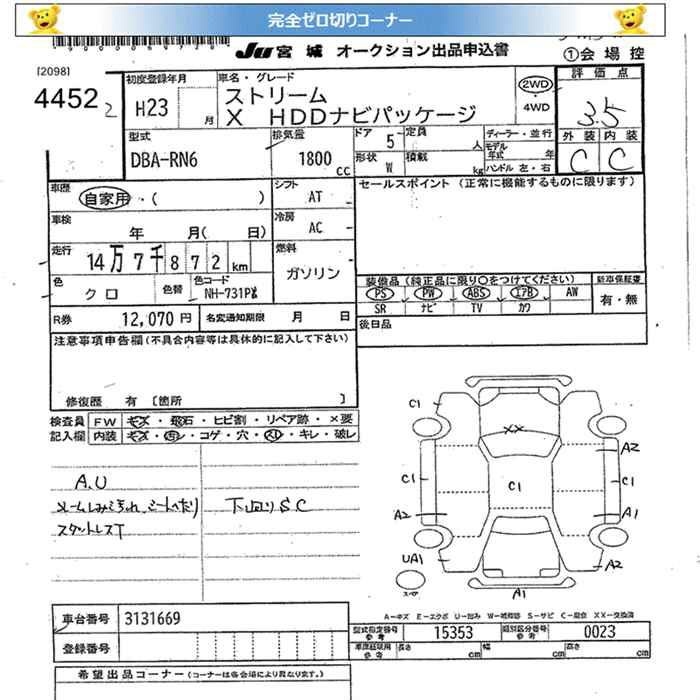 完全ゼロ切りコーナー
Ju 宮城 オークション出品申込書
①会場控
[2098]
4452 2
初度登録年月
H23 月
車名・グレード
ストリーム
X HDDナビパッケージ
2WD
・4WD
評価点
3.5
外装 内装
C C
型式
DBA-RN6
排気量
1800 cc
ドア 5
形状 W
定員 人
積載 kg
ディーラー・並行
モデル年式 年
ハンドル 左・右
車歴
自家用・( )
シフト
AT
セールスポイント (正常に機能するものに限ります)
車検
年 月( 日)
冷房
AC
走行
14万7千872km
燃料
ガソリン
色
クロ
色替
色コード
NH-731PX
装備品(純正品に限り〇をつけてください)
新車保証書
PS PW ABS エアB AW
SR ナビ TV カワ
有・無
R券 12,070円
名変通知期限 月 日
後日品
注意事項申告欄(不具合内容等は具体的に記入して下さい)
修復歴 有 [箇所 ]
検査員 FW キズ・飛石・ヒビ割・リペア跡・×要
記入欄 内装 キズ・汚・コゲ・穴・スレ・キレ・破レ
A.U
スタットレスT
下回りSC
C1
XX
A2
C1
C1
C1
A2
A1
UA1
A2
スペア
A1
A=キズ E=エクボ U=凹み W=補修跡 S=サビ C=腐食 XX=交換済
車台番号 3131669
登録番号
型式指定番号 参考 15353
類別区分番号 参考 0023
車庫証明用 参考 長さ cm 幅 cm 高さ cm
希望出品コーナー(コーナーは各会場により異なります)